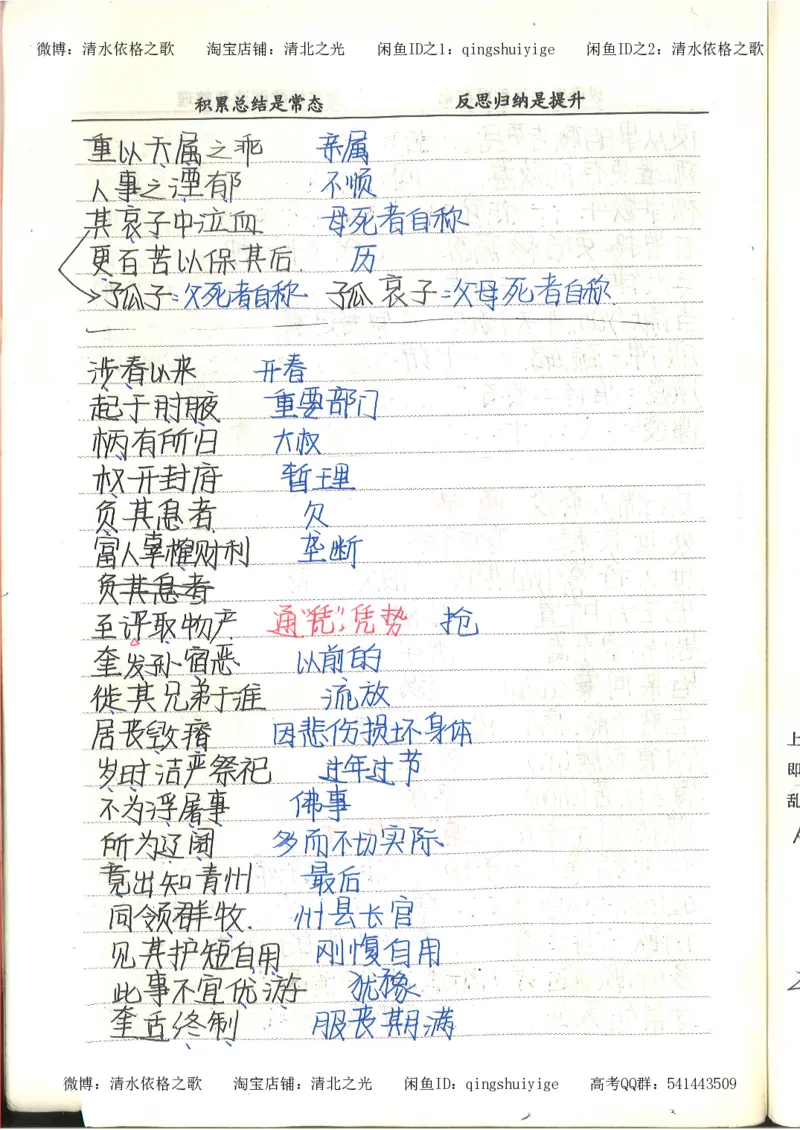 微博：清水依格之歌 淘宝店铺：清北之光 闲鱼ID之1：qingshuiyige 闲鱼ID之2：清水依格之歌
积累总结是常态 反思归纳是提升
重以天属之乖 亲属
人事之湮郁 不顺
其哀子中泣血 母死者自称
更百苦以保其后. 历
孤子=父死者自称 孤哀子=父母死者自称
涉春以来 开春
起于肘腋 重要部门
柄有所归 大权
权开封府 暂理
负其息者 欠
富人辜榷财利 垄断
负其息者
至评取物产 通“凭”，凭势 抢
奎发孙宿恶 以前的
徙其兄弟于淮 流放
居丧毁瘠 因悲伤损坏身体
岁时洁严祭祀 过年过节
不为浮屠事 佛事
所为辽阔 多而不切实际
竟出知青州 最后
同领群牧. 州县长官
见其护短自用 刚愎自用
此事不宜优游 犹豫
奎适终制 服丧期满
上
即
乱
微博：清水依格之歌 淘宝店铺：清北之光 闲鱼ID：qingshuiyige 高考QQ群：541443509